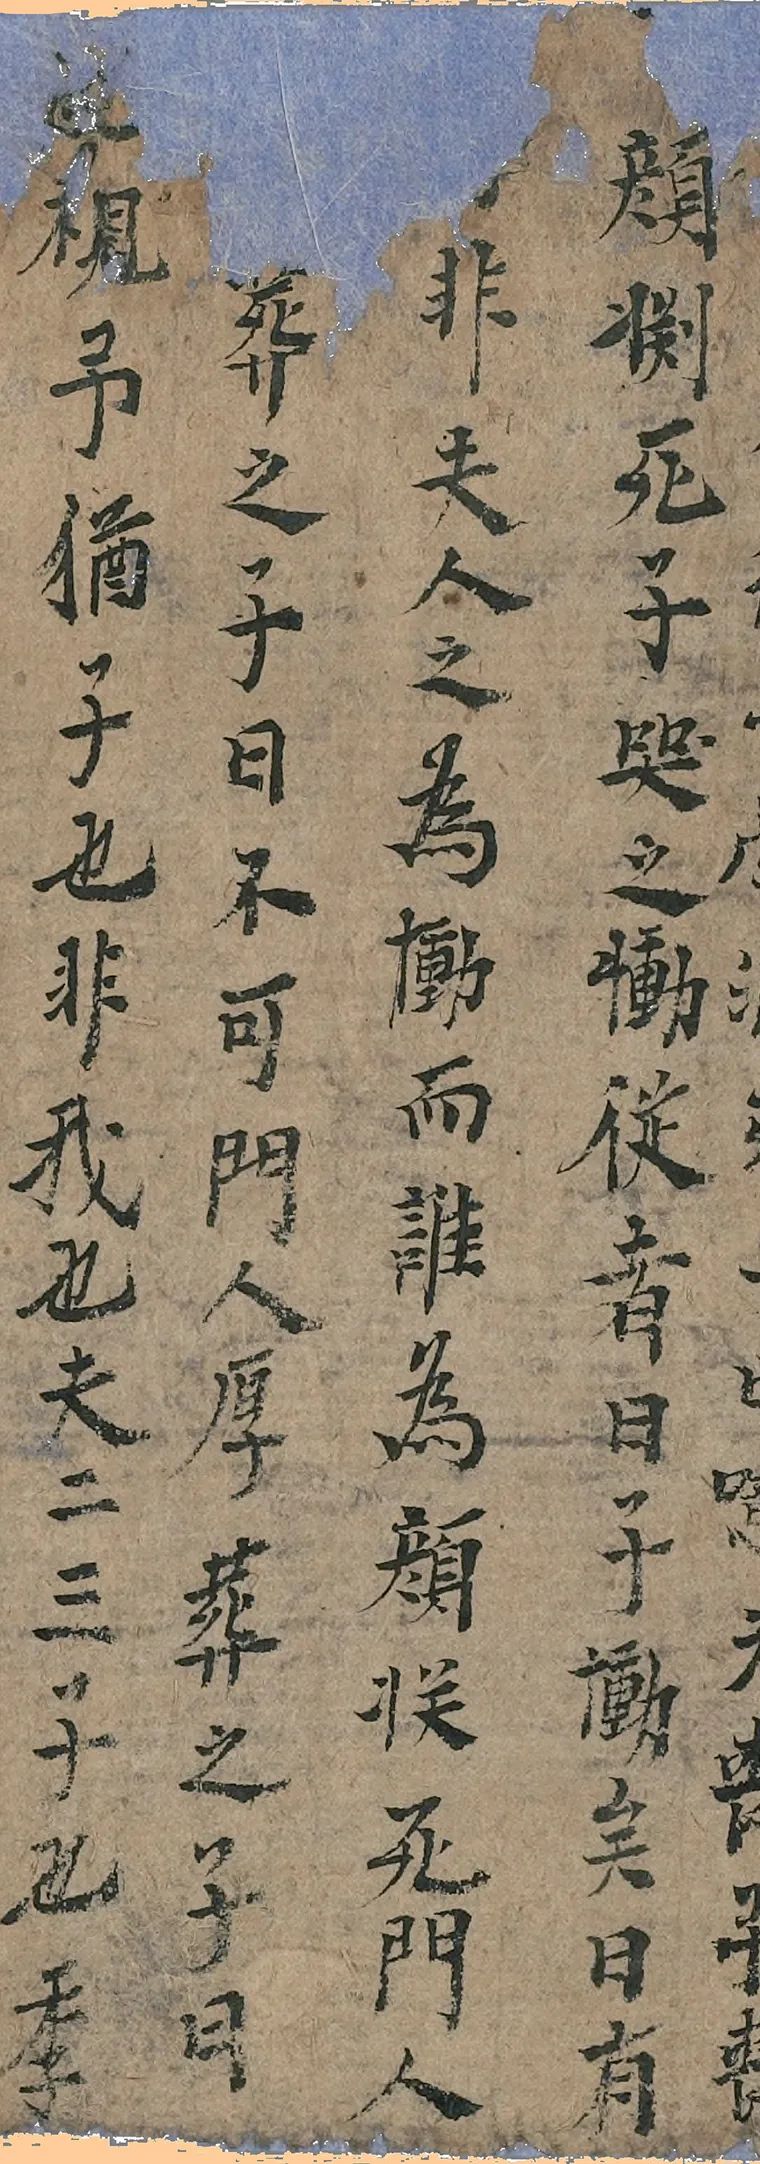 喪予喪
顔渕死子哭之慟從者曰子慟矣曰有
非夫人之為慟而誰為顔渕死門人
葬之子曰不可門人厚葬之子曰
視予猶子也非我也夫二三子也季